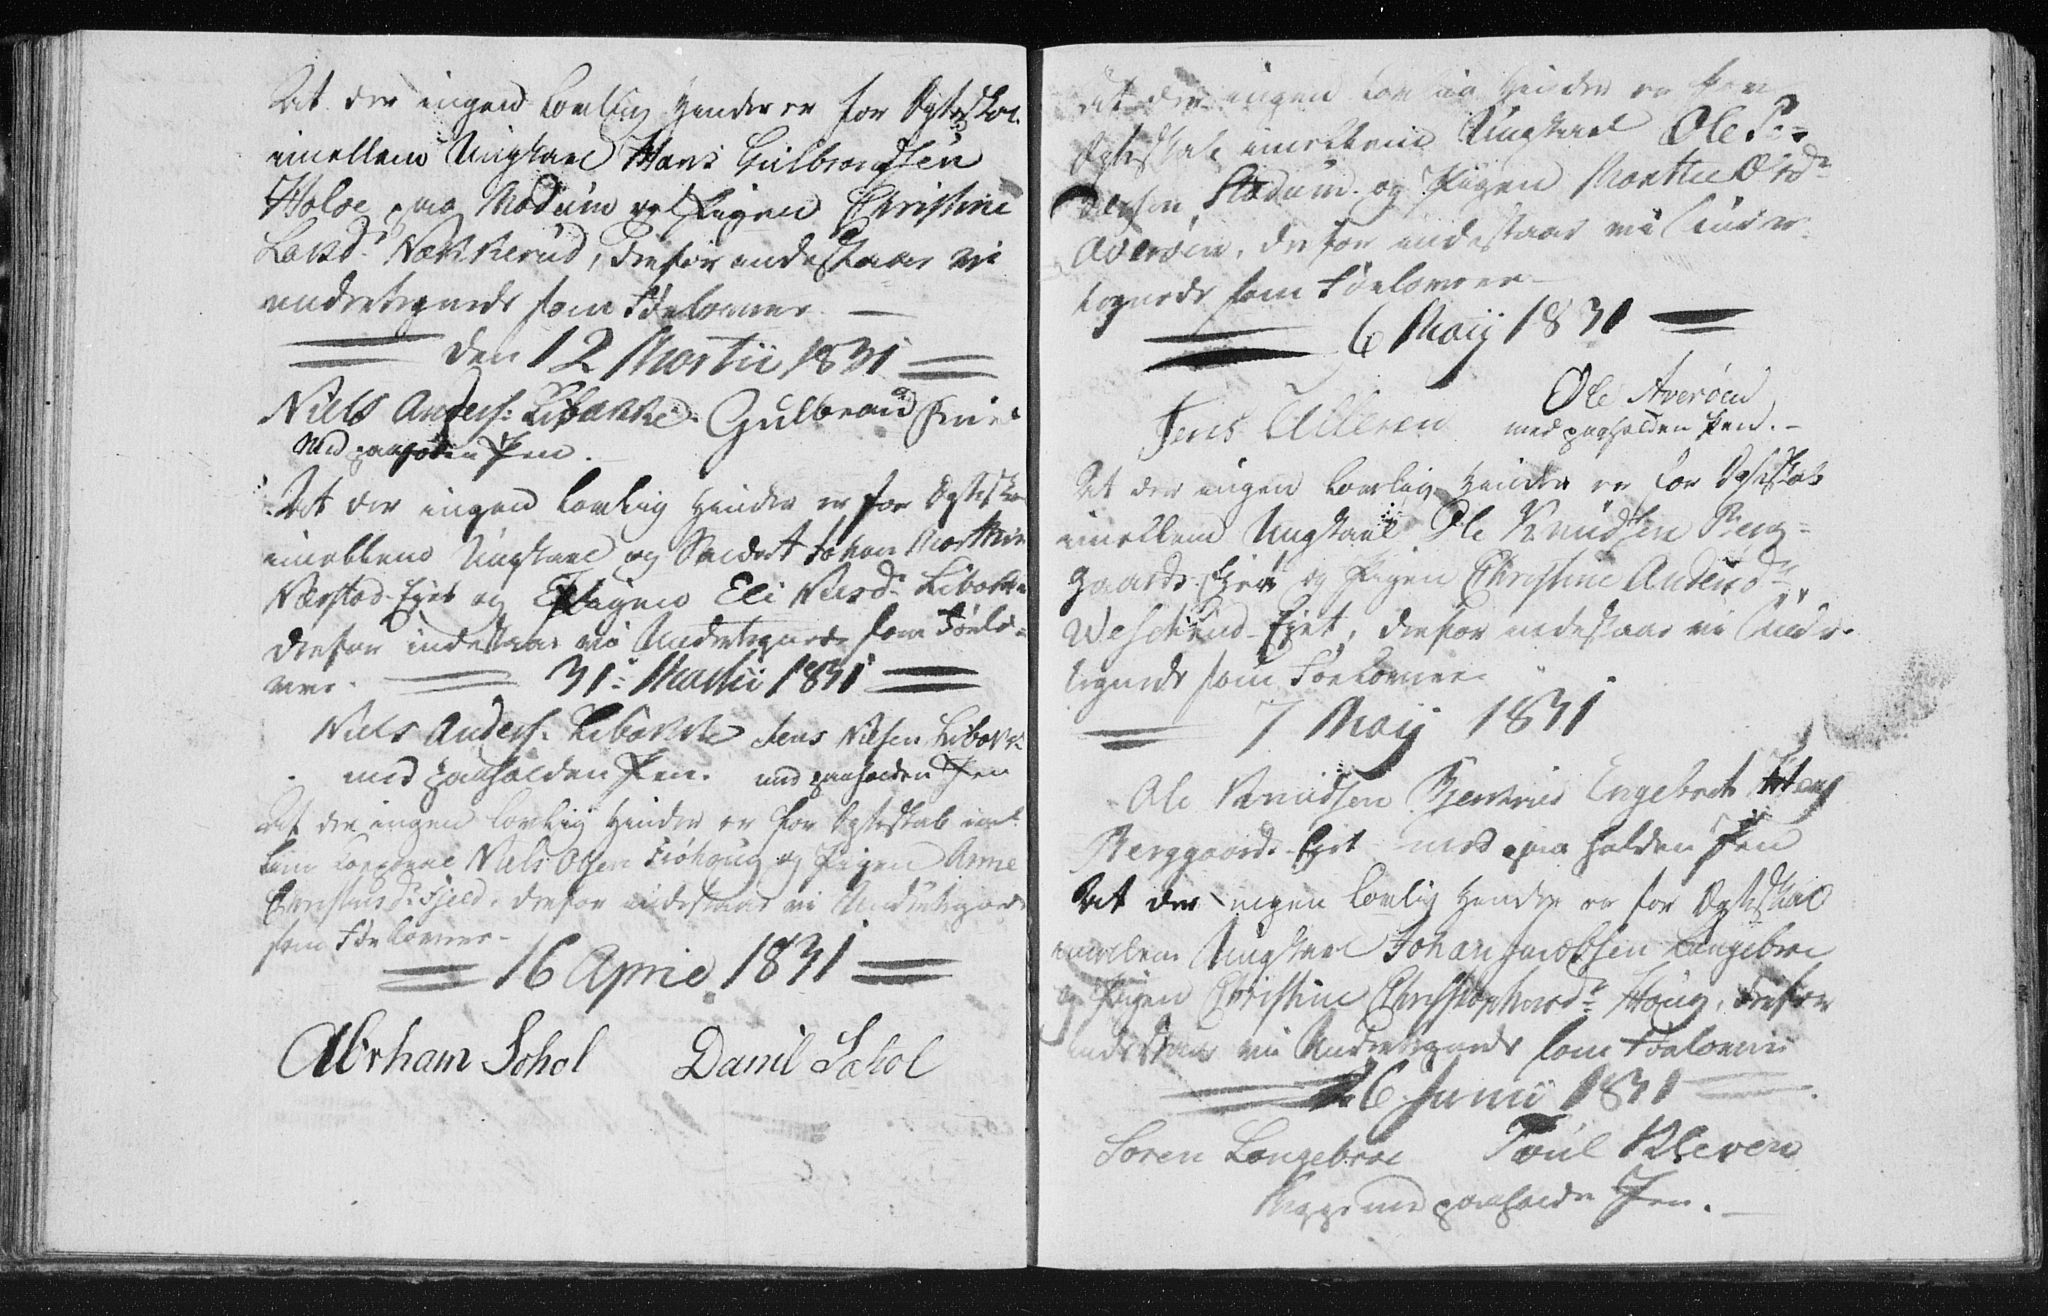 At der ingen lovlig Hinder er for Ægteskab
imellem Ungkarl Hans Gulbrandsen
Holoe paa Modum og Pigen Christine
Larsd: Nækkerud, derfor indestaar vi
undertegnede som Forlovere
den 12 Martii 1831
Niels Anders: Libække Gulbrand
Med paaholden Pen.
At der ingen lovlig Hinder er for Ægteska
imellem Ungkarl og Soldat Johan Marthin
Nærstad Ejet og Pigen Eli Nilsd: Libække
derfor indestaar vi Undertegnede som Forlo-
vere. 31: Martii 1831
Niels Anders: Libække Jens Nilsen Libække
med paaholden Pen. med paaholden Pen
At der ingen lovlig Hinder er for Ægteskab imel
lem Niels Olsen og Pigen Anne
Fjeld, derfor indestaar vi Undertegnede
som Forlovere
16 April 1831
Abrham Sohol Danil Sohol
At der ingen lovlig Hinder er for
Ægteskab imellem Ungkarl Ole P:-
og Pigen Marthe
Averøen, derfor indestaar vi Under-
tegnede som Forlovere
6 Maij 1831
Jens Ulleren Ole Averøen
med paaholden Pen.
At der ingen lovlig Hinder er for Ægteskab
imellem Ungkarl Ole Knudsen Berg-
gaards Ejet og Pigen Christine Andersd:
Eiet, derfor indestaar vi Under-
tegnede som Forlovere
7 Maij 1831
Ole Knudsen Bjerkrud Engebret
Berggaards Ejet med paaholden Pen
At der ingen lovlig Hinder er for Ægteskab
imellem Ungkarl Johan Jacobsen Langebroe
og Pigen Christine Christophersd: Houg, derfor
indestaar vi Undertegnede som Forlovere
26 Junii 1831
Soren Langebroe Poul Kleven
Begge med paaholden Pen.